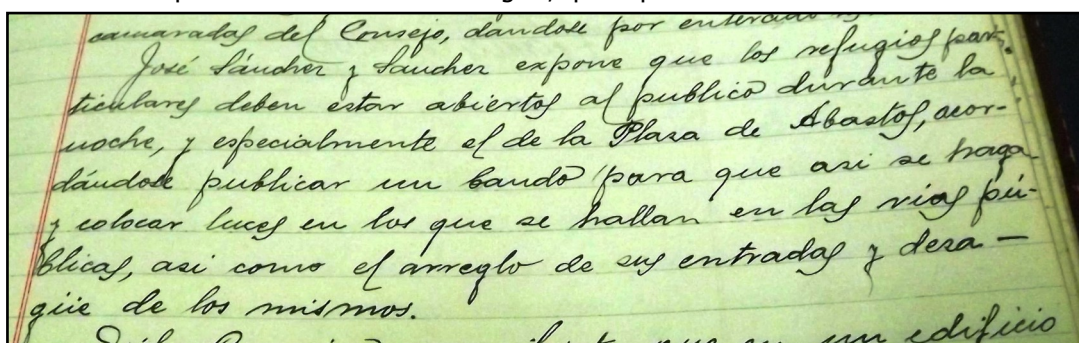 camaradas del Consejo, dandose por enterado
José Sáncher y Saucher expone que los refugios par-
ticulares deben estar abiertos al publico durante la
noche, y especialmente el de la Plasa de Abastos, acor-
dándose publicar un bando para que asi se haga
y colocar luces en los que se hallan en las vias pú-
blicas, asi como el arreglo de sus entradas y desa-
güe de los mismos.
que en un edificio